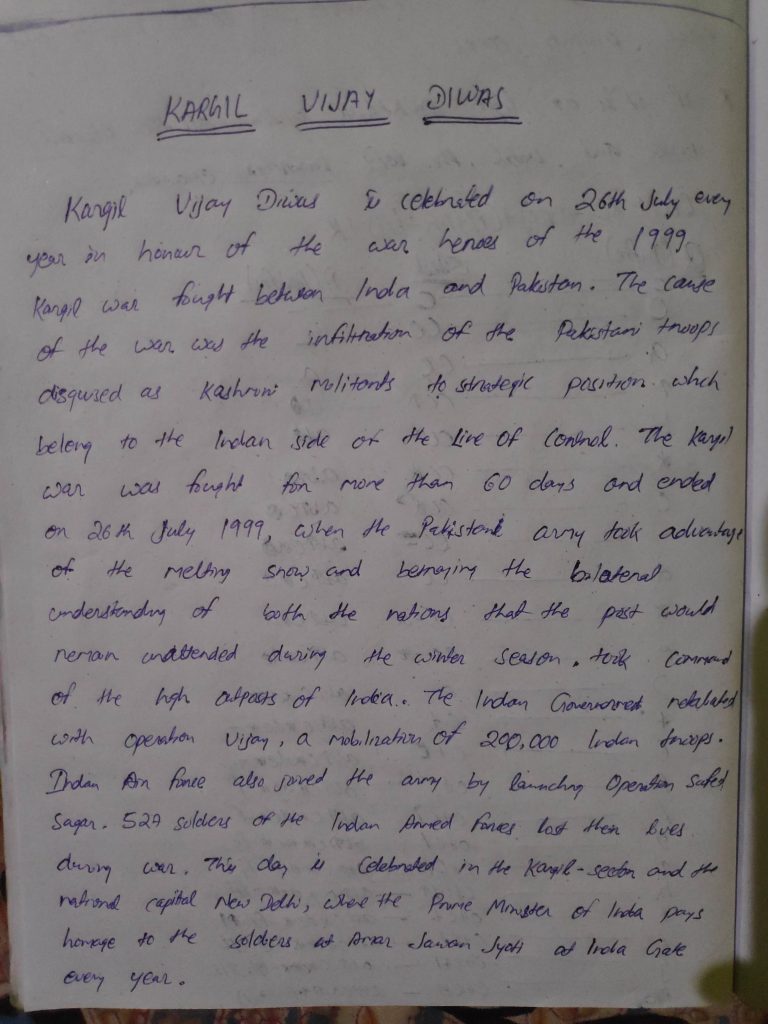 KARGIL VIJAY DIWAS
Kargil Vijay Diwas is celebrated on 26th July every
year in honour of the war heroes of the 1999
Kargil war fought between India and Pakistan. The cause
of the war was the infiltration of the Pakistani troops
disguised as Kashmiri militants to strategic position which
belong to the Indian side of the Line Of Control. The Kargil
war was fought for more than 60 days and ended
on 26th July 1999, when the Pakistani army took advantage
of the melting snow and betraying the bilateral
understanding of both the nations that the post would
remain unattended during the winter season. took command
of the high outposts of India. The Indian Government retaliated
with operation Vijay, a mobilization of 200,000 Indian troops.
Indian Air Force also joined the army by launching Operation Safed
Sagar. 527 soldiers of the Indian Armed Forces lost their lives
during war. This day is celebrated in the Kargil-sector and the
national capital New Delhi, where the Prime Minister of India pays
homage to the soldiers at Amar Jawan Jyoti at India Gate
every year.